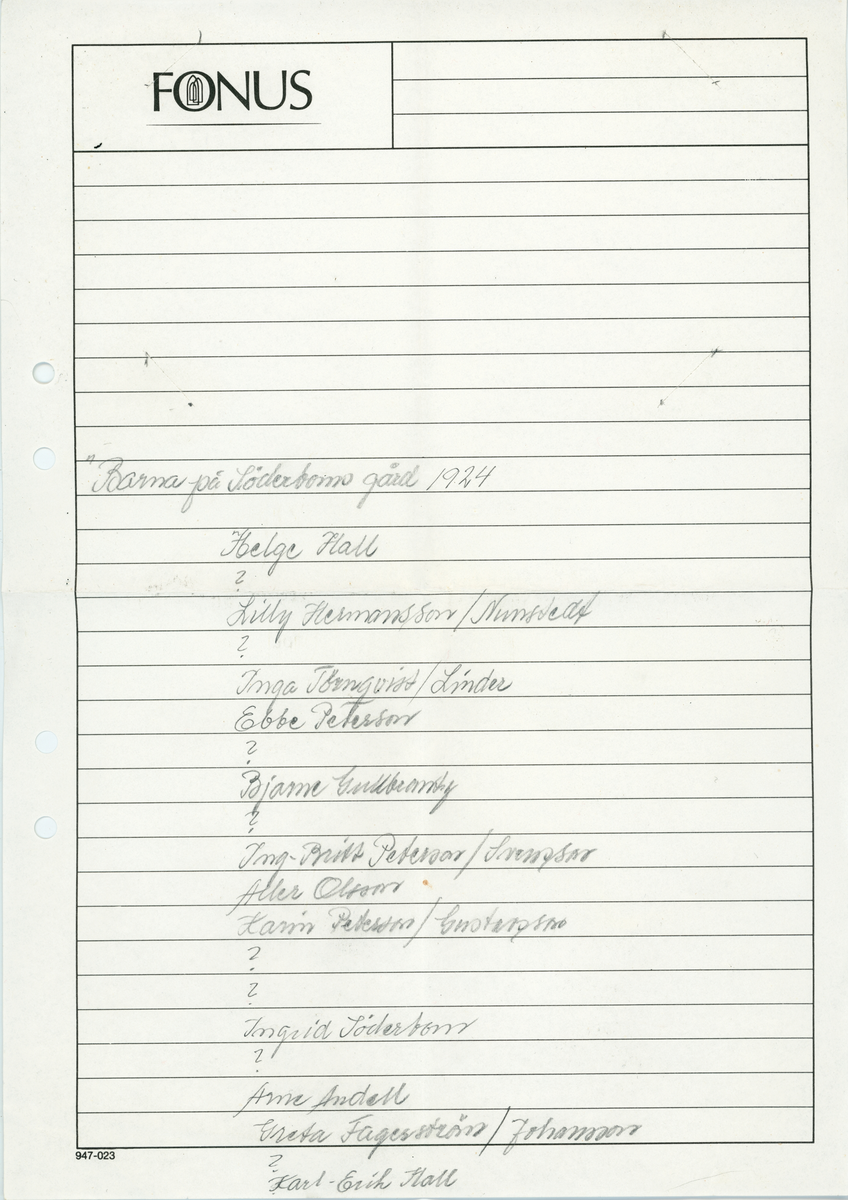 FONUS
"Barna på Söderboms gård 1924
Helge Hall
?
Lilly Hermansson/Nunstedt
?
Inga Törnqvist/Linder
Ebbe Peterson
?
Bjarne
?
Ing-Britt Peterson/Svensson
Aller Olsson
Karin Peterson/Gustavsson
?
?
Ingrid Söderbom
?
Arne Andell
Greta Fagerström/Johansson
947-023
?
Karl-Erik Hall